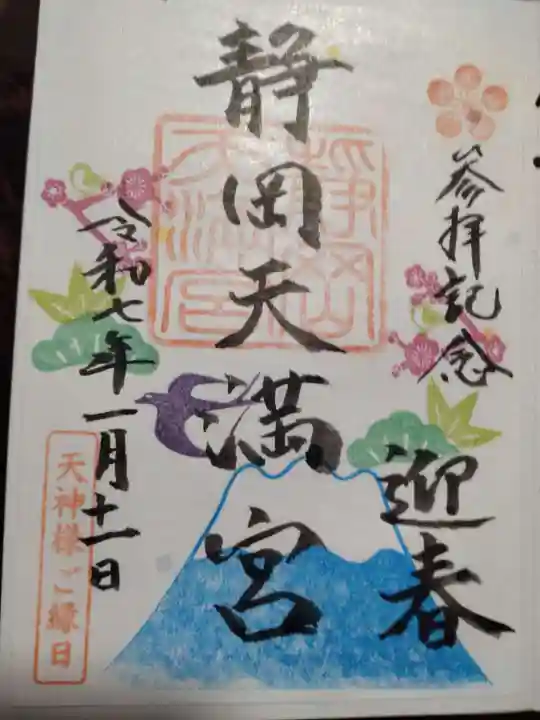 参拝記念
迎春
静岡天満宮
令和七年一月十一日
天神様ご縁日